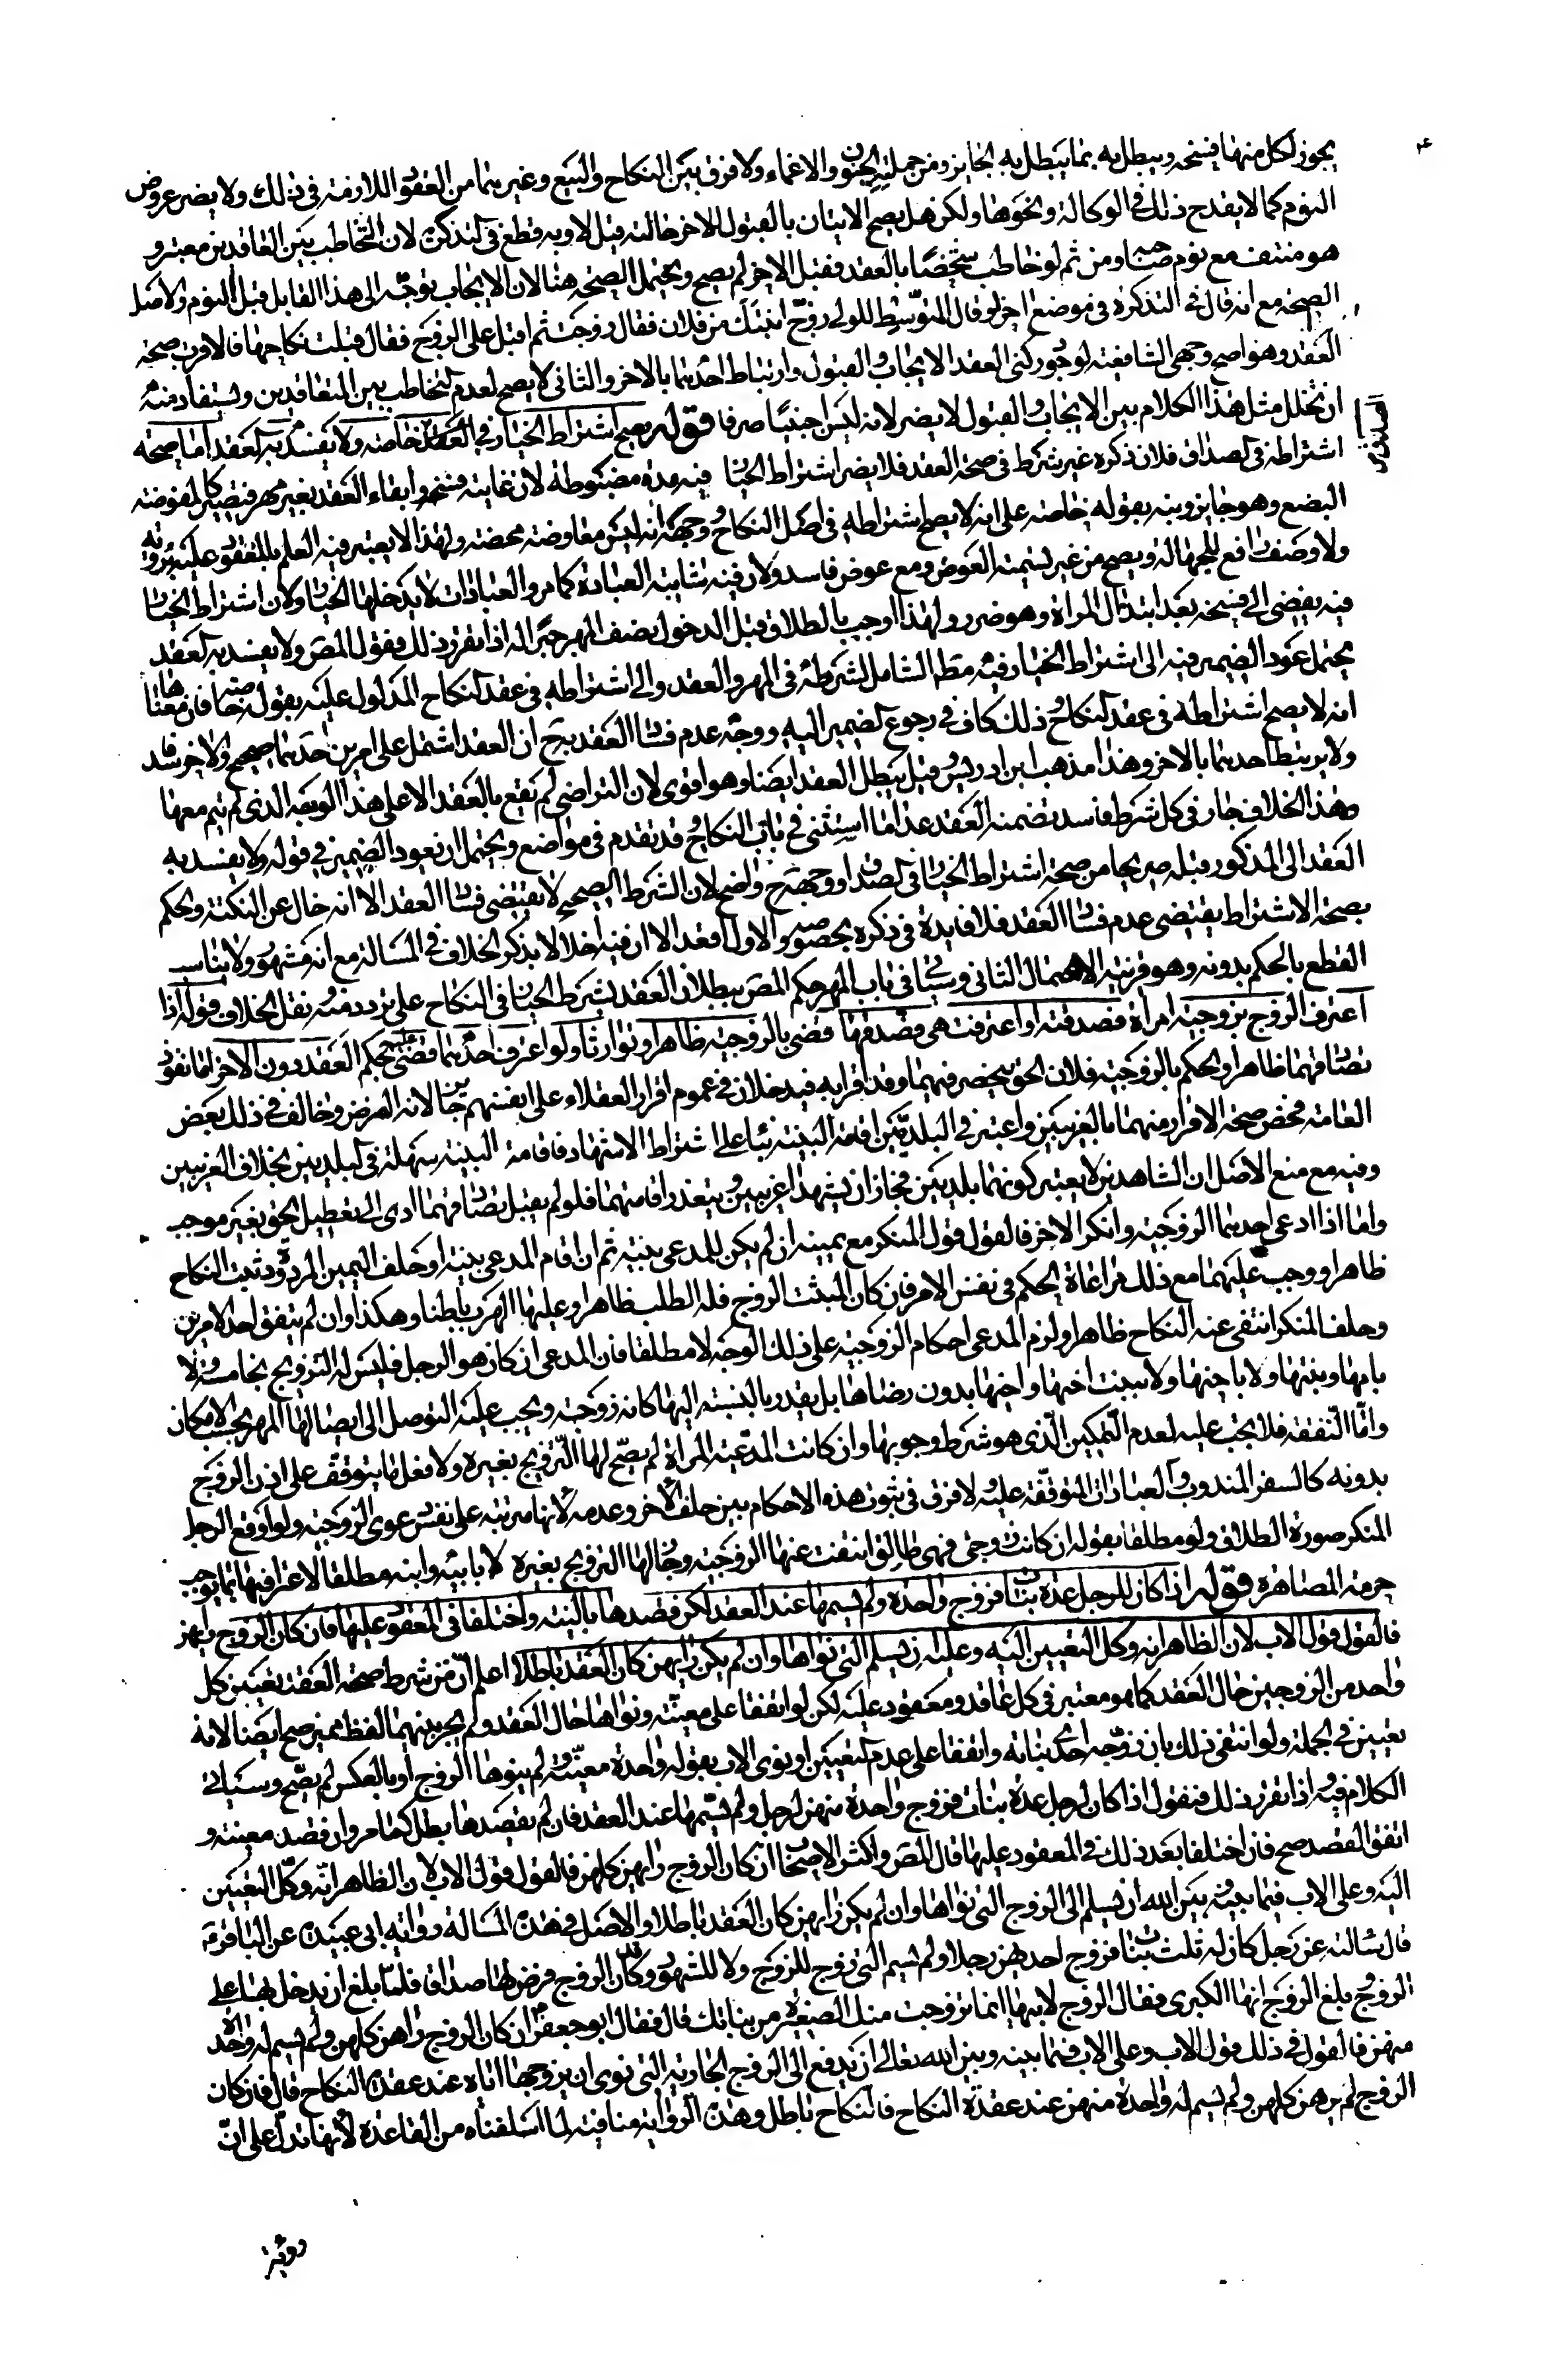 يجوز لكل منهما فسخه ويبطل به بما يبطل به الجايز ومن جملته الجنون والاغماء ولا فرق بين النكاح والبيع وغيرهما من العقود اللازمة في ذلك ولا يضر عروض
النوم كما لا يقدح ذلك في الوكالة ونحوها ولكن هل يصح الاتيان بالقبول للاخر حالته قيل لا وبه قطع في التذكرة لان التخاطب بين العاقدين معتبر و
هو منتف مع نوم صاحبه ومن ثم لو خاطب شخصا بالعقد فقبل الاخر لم يصح ويحتمل الصحة هنا لان الايجاب توجه الى هذا القابل قبل النوم والاصل
الصحة مع انه قال في التذكرة في موضع اخر لو قال المتوسط للولي زوج ابنتك من فلان فقال زوجت ثم اقبل على الزوج فقال قبلت نكاحها فالاقرب صحة
العقد وهو اصح وجهي الشافعية لوجود ركني العقد الايجاب والقبول وارتباط احدهما بالاخر والثاني لا يصح لعدم التخاطب بين المتعاقدين ويستفاد منه
ان تخلل مثل هذا الكلام بين الايجاب والقبول لا يضر لانه ليس اجنبيا صرفا قوله يصح اشتراط الخيار في الصداق خاصة ولا يفسد به العقد اما صحة
اشتراطه في الصداق فلان ذكره غير شرط في صحة العقد فلا يضر اشتراط الخيار فيه مدة مضبوطة لان غايته فسخه وابقاء العقد بغير مهر فتصير كالمفوضة
البضع وهو جايز ونبه بقوله خاصة على انه لا يصح اشتراطه في اصل النكاح ووجهه انه ليس معاوضة محضة ولهذا لا يعتبر فيه العلم بالمعقود عليه برؤية
ولا وصف رافع للجهالة ويصح من غير تسمية العوض ومع عوض فاسد ولان فيه شائبة العبادة كما مر والعبادات لا يدخلها الخيار ولان اشتراط الخيار
فيه يفضي الى فسخه بعد ابتذال المراة وهو ضرر ولهذا اوجب بالطلاق قبل الدخول نصف المهر جبرا له اذا تقرر ذلك فقول المص ولا يفسد به العقد
يحتمل عود الضمير فيه الى اشتراط الخيار فيه مطلقا الشامل لشرطه في المهر والعقد والى اشتراطه في عقد النكاح المدلول عليه بقوله خاصة فان معناها
انه لا يصح اشتراطه في عقد النكاح وذلك كاف في رجوع الضمير اليه ووجه عدم فساد العقد به ح ان العقد اشتمل على امرين احدهما صحيح والاخر فاسد
ولا يرتبط احدهما بالاخر وهذا مذهب ابن ادريس وقيل يبطل العقد ايضا وهو اقوى لان التراضي لم يقع بالعقد الا على هذا الوجه الذي لم يتم معها
وهذا الخلاف جار في كل شرط فاسد تضمنه العقد عدا ما استثني في باب النكاح وقد تقدم في مواضع ويحتمل ان يعود الضمير في قوله ولا يفسد به
العقد الى المذكور قبله صريحا من صحة اشتراط الخيار في الصداق ووجهه ح واضح لان الشرط الصحيح لا يقتضي فساد العقد الا انه خال عن النكتة والحكم
بصحة الاشتراط يقتضي عدم فساد العقد فلا فايدة في ذكره بخصوصه والاول اقعد الا ان فيه اخلالا بذكر الخلاف في المسالة مع انه مشهور ولا يناسب
القطع بالحكم بدونه وهو قرينة الاحتمال الثاني وسياتي في باب المهر حكم المص ببطلان العقد بشرط الخيار في النكاح على تردد منه ونقل الخلاف قوله اذا
اعترف الزوج بزوجية امراة فصدقته او اعترفت هي فصدقها قضي بالزوجية ظاهرا وتوارثا ولو اعترف احدهما قضي عليه بحكم العقد دون الاخر اما نفوذ
تصادقهما ظاهرا والحكم بالزوجية فلان الحق ينحصر فيهما وقد اقرا به فيدخلان في عموم اقرار العقلاء على انفسهم جايز لانه الفرض وخالف في ذلك بعض
العامة فخص صحة الاقرار منهما بالغريبين واعتبر في البلديين اقامة البينة بناء على اشتراط الاشهاد فاقامة البينة سهلة في البلديين بخلاف الغريبين
وفيه مع منع الاصل ان الشاهدين لا يعتبر كونهما بلديين فجاز ان يشهدا غريبين ويتعذر اقامتهما فلو لم يقبل تصادقهما ادى الى تعطيل الحق بغير موجب
واما اذا ادعى احدهما الزوجية وانكر الاخر فالقول قول المنكر مع يمينه ان لم يكن للمدعي بينة ثم ان اقام المدعي بينة او حلف اليمين المردودة ثبت النكاح
ظاهرا ووجب عليهما مع ذلك مراعاة الحكم في نفس الامر فان كان المثبت الزوج فله الطلب ظاهرا وعليها الهرب باطنا وهكذا وان لم يتفق احد الامرين
وحلف المنكر انتفى عنه النكاح ظاهرا ولزم المدعي احكام الزوجية على ذلك الوجه لا مطلقا فان المدعي ان كان هو الرجل فليس له التزويج بخامسة ولا
بامها وبنتها ولا باختها ولا ببنت اخيها واختها بدون رضاها بل يقدر بالنسبة اليها كانه زوجته ويجب عليه التوصل الى ايصالها المهر بحسب الامكان
واما النفقة فلا يجب عليه لعدم التمكين الذي هو شرط وجوبها وان كانت المدعية المراة لم يصح لها التزويج بغيره ولا فعل ما يتوقف على اذن الزوج
بدونه كالسفر المندوب والعبادات المتوقفة عليه ولا فرق في ثبوت هذه الاحكام بين حلف الاخر وعدمه لانها مرتبه على نفس دعوى الزوجية ولو اوقع الرجل
المنكر صورة الطلاق ولو مطلقا بقوله ان كانت زوجتي فهي طالق انتفت عنها الزوجية وجاز لها التزويج بغيره لا بابيه وابنه مطلقا لاعترافها بما يوجب
حرمة المصاهرة قوله اذا كان للرجل عدة بنات فزوج واحدة ولم يسمها عند العقد لكن قصدها بالنية واختلفا في المعقود عليها فان كان الزوج راهن
فالقول قول الاب لان الظاهر انه وكل التعيين اليه وعليه ان يسلم التي نواها وان لم يكن راهن كان العقد باطلا اعلم ان من شرط صحة العقد تعيين كل
واحد من الزوجين حال العقد كما هو معتبر في كل عاقد ومعقود عليه لكن لو اتفقا على معينة ونواها حال العقد ولم يجر بينهما لفظ مميز صح ايضا لانه
تعيين في الجملة ولو انتفى ذلك بان زوجه احدى بناته واتفقا على عدم التعيين او نوى الاب بقوله واحدة معينة ولم ينوها الزوج او بالعكس لم يصح وسياتي
الكلام فيه اذا تقرر ذلك فنقول اذا كان لرجل عدة بنات فزوج واحدة منهن لرجل ولم يسمها عند العقد فان لم يقصدها بطل كما مر وان قصد معينة و
اتفق القصد صح فان اختلفا بعد ذلك في المعقود عليها قال المص واكثر الاصحاب ان كان الزوج راهن كلهن فالقول قول الاب لان الظاهر انه وكل التعيين
اليه وعلى الاب فيما بينه وبين الله ان يسلم الى الزوج التي نواها وان لم يكن راهن كان العقد باطلا والاصل في هذه المسالة رواية ابي عبيدة عن الباقر ع
قال سالته عن رجل كان له ثلث بنات فزوج احديهن رجلا ولم يسم التي زوج للزوج ولا للشهود وقد كان الزوج فرض لها صداقا فلما بلغ ان يدخل بها على
الزوج بلغ الزوج انها الكبرى فقال الزوج لابيها انما تزوجت منك الصغيرة من بناتك قال فقال ابو جعفر ان كان الزوج راهن كلهن ولم يسم له واحدة
منهن فالقول في ذلك قول الاب وعلى الاب فيما بينه وبين الله تعالى ان يدفع الى الزوج الجارية التي نوى ان يزوجها اياه عند عقدة النكاح قال فان كان
الزوج لم يرهن كلهن ولم يسم له واحدة منهن عند عقدة النكاح فالنكاح باطل وهذه الرواية منافية لما اسلفناه من القاعدة لانها تدل على ان